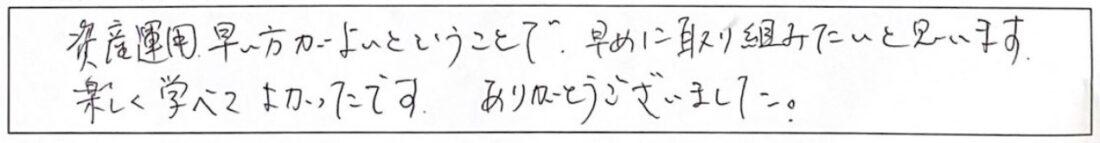 資産運用、早い方がよいということで、早めに取り組みたいと思います。
楽しく学べてよかったです。ありがとうございました。